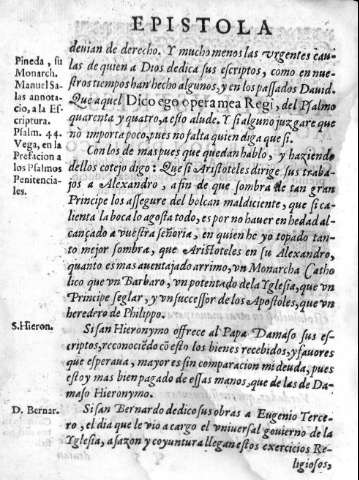 EPISTOLA
deuian de derecho. Y mucho menos las vrgentes cau-
sas de quien a Dios dedica sus escriptos, como en nue-
stros tiempos han hecho algunos, y en los passados Dauid.
Que aquel Dico ego opera mea Regi, del Psalmo
quarenta y quatro, a esto alude. Y si alguno juzgare que
no importa poco, pues no falta quien diga que si.
Con los de mas pues que quedan hablo, y haziendo
dellos cotejo digo: Que si Aristoteles dirige sus traba-
jos a Alexandro, a fin de que sombra de tan gran
Principe los assegure del bolcan maldiciente, que si ca-
lienta la boca lo agosta todo, es por no hauer en hedad al-
cançado a vuestra señoria, en quien he yo topado tan-
to mejor sombra, que Aristoteles en su Alexandro,
quanto es mas auentajado arrimo, vn Monarcha Catho
lico que vn Barbaro, vn potentado de la Yglesia, que vn
Principe seglar, y vn successor de los Apostoles, que vn
heredero de Philippo.
Si san Hieronymo offrece al Papa Damaso sus es-
criptos, reconociẽdo cõ esto los bienes recebidos, y fauores
que esperaua, mayor es sin comparacion mi deuda, pues
estoy mas bien pagado de essas manos, que de las de Da-
maso Hieronymo.
Si san Bernardo dedico sus obras a Eugenio Terce-
ro, el dia que le vio a cargo el vniuersal gouierno de la
Yglesia, a sazon y coyuntura llegan estos exercicios Re-
ligiosos,
Pineda, su
Monarch.
Manuel Sa-
las annotac
io, a la Es-
criptura.
Psalm. 44.
Vega, en la
Prefacion a
los Psalmos
Penitencia-
les.
S. Hieron.
D. Bernar.